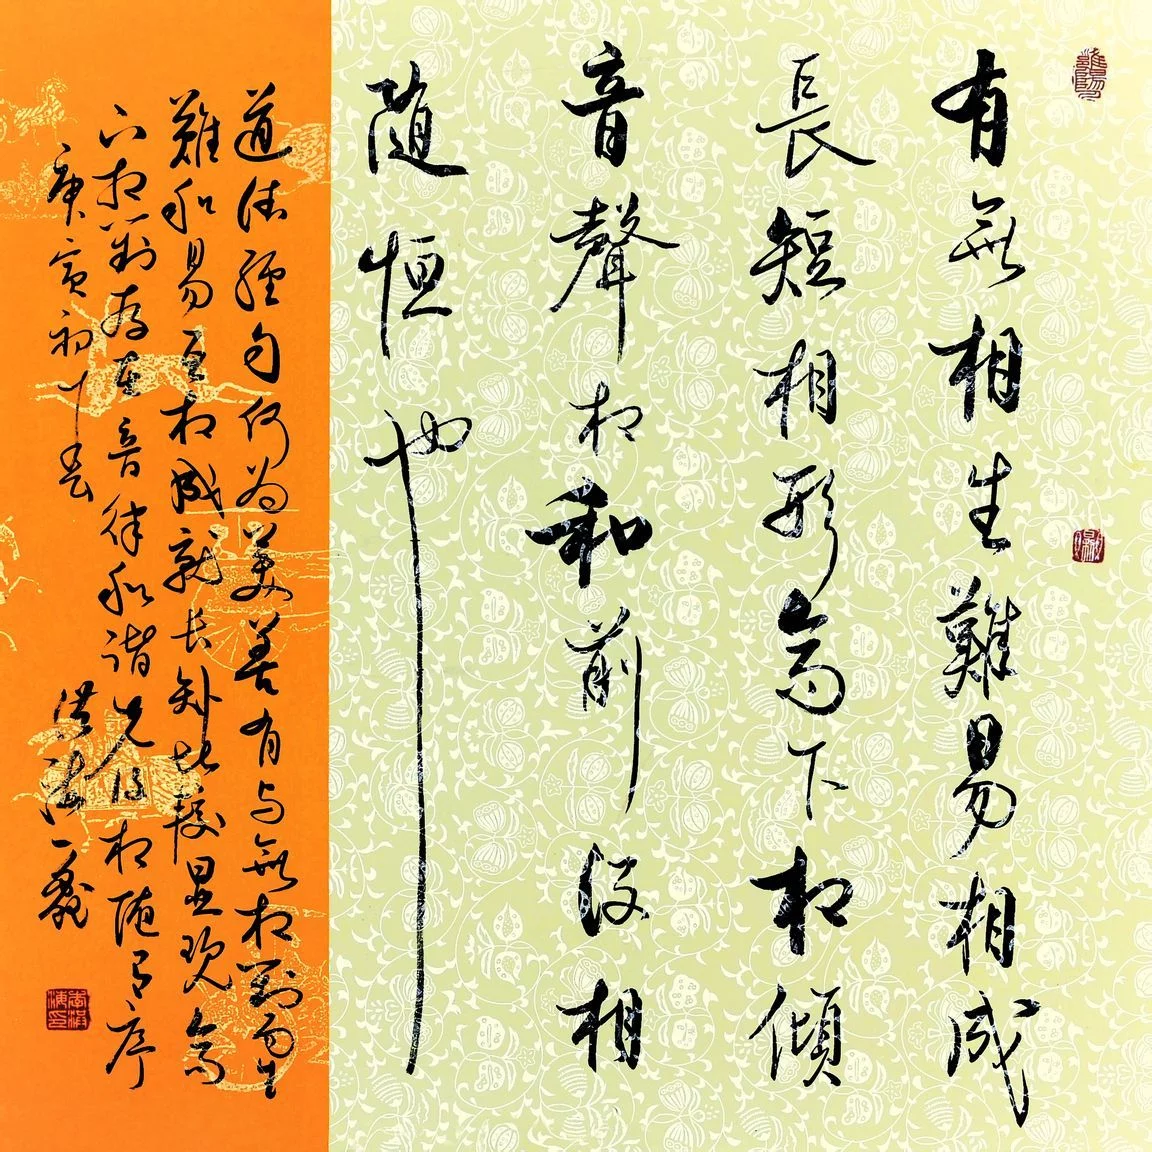 有無相生難易相成
長短相形高下相傾
音聲相和前後相
隨恒也
道德經句何為美善有与無相對而生
難和易互相成就長短比較显现高
下相對存在音律和谐先後相随有序
庚寅初
洪海